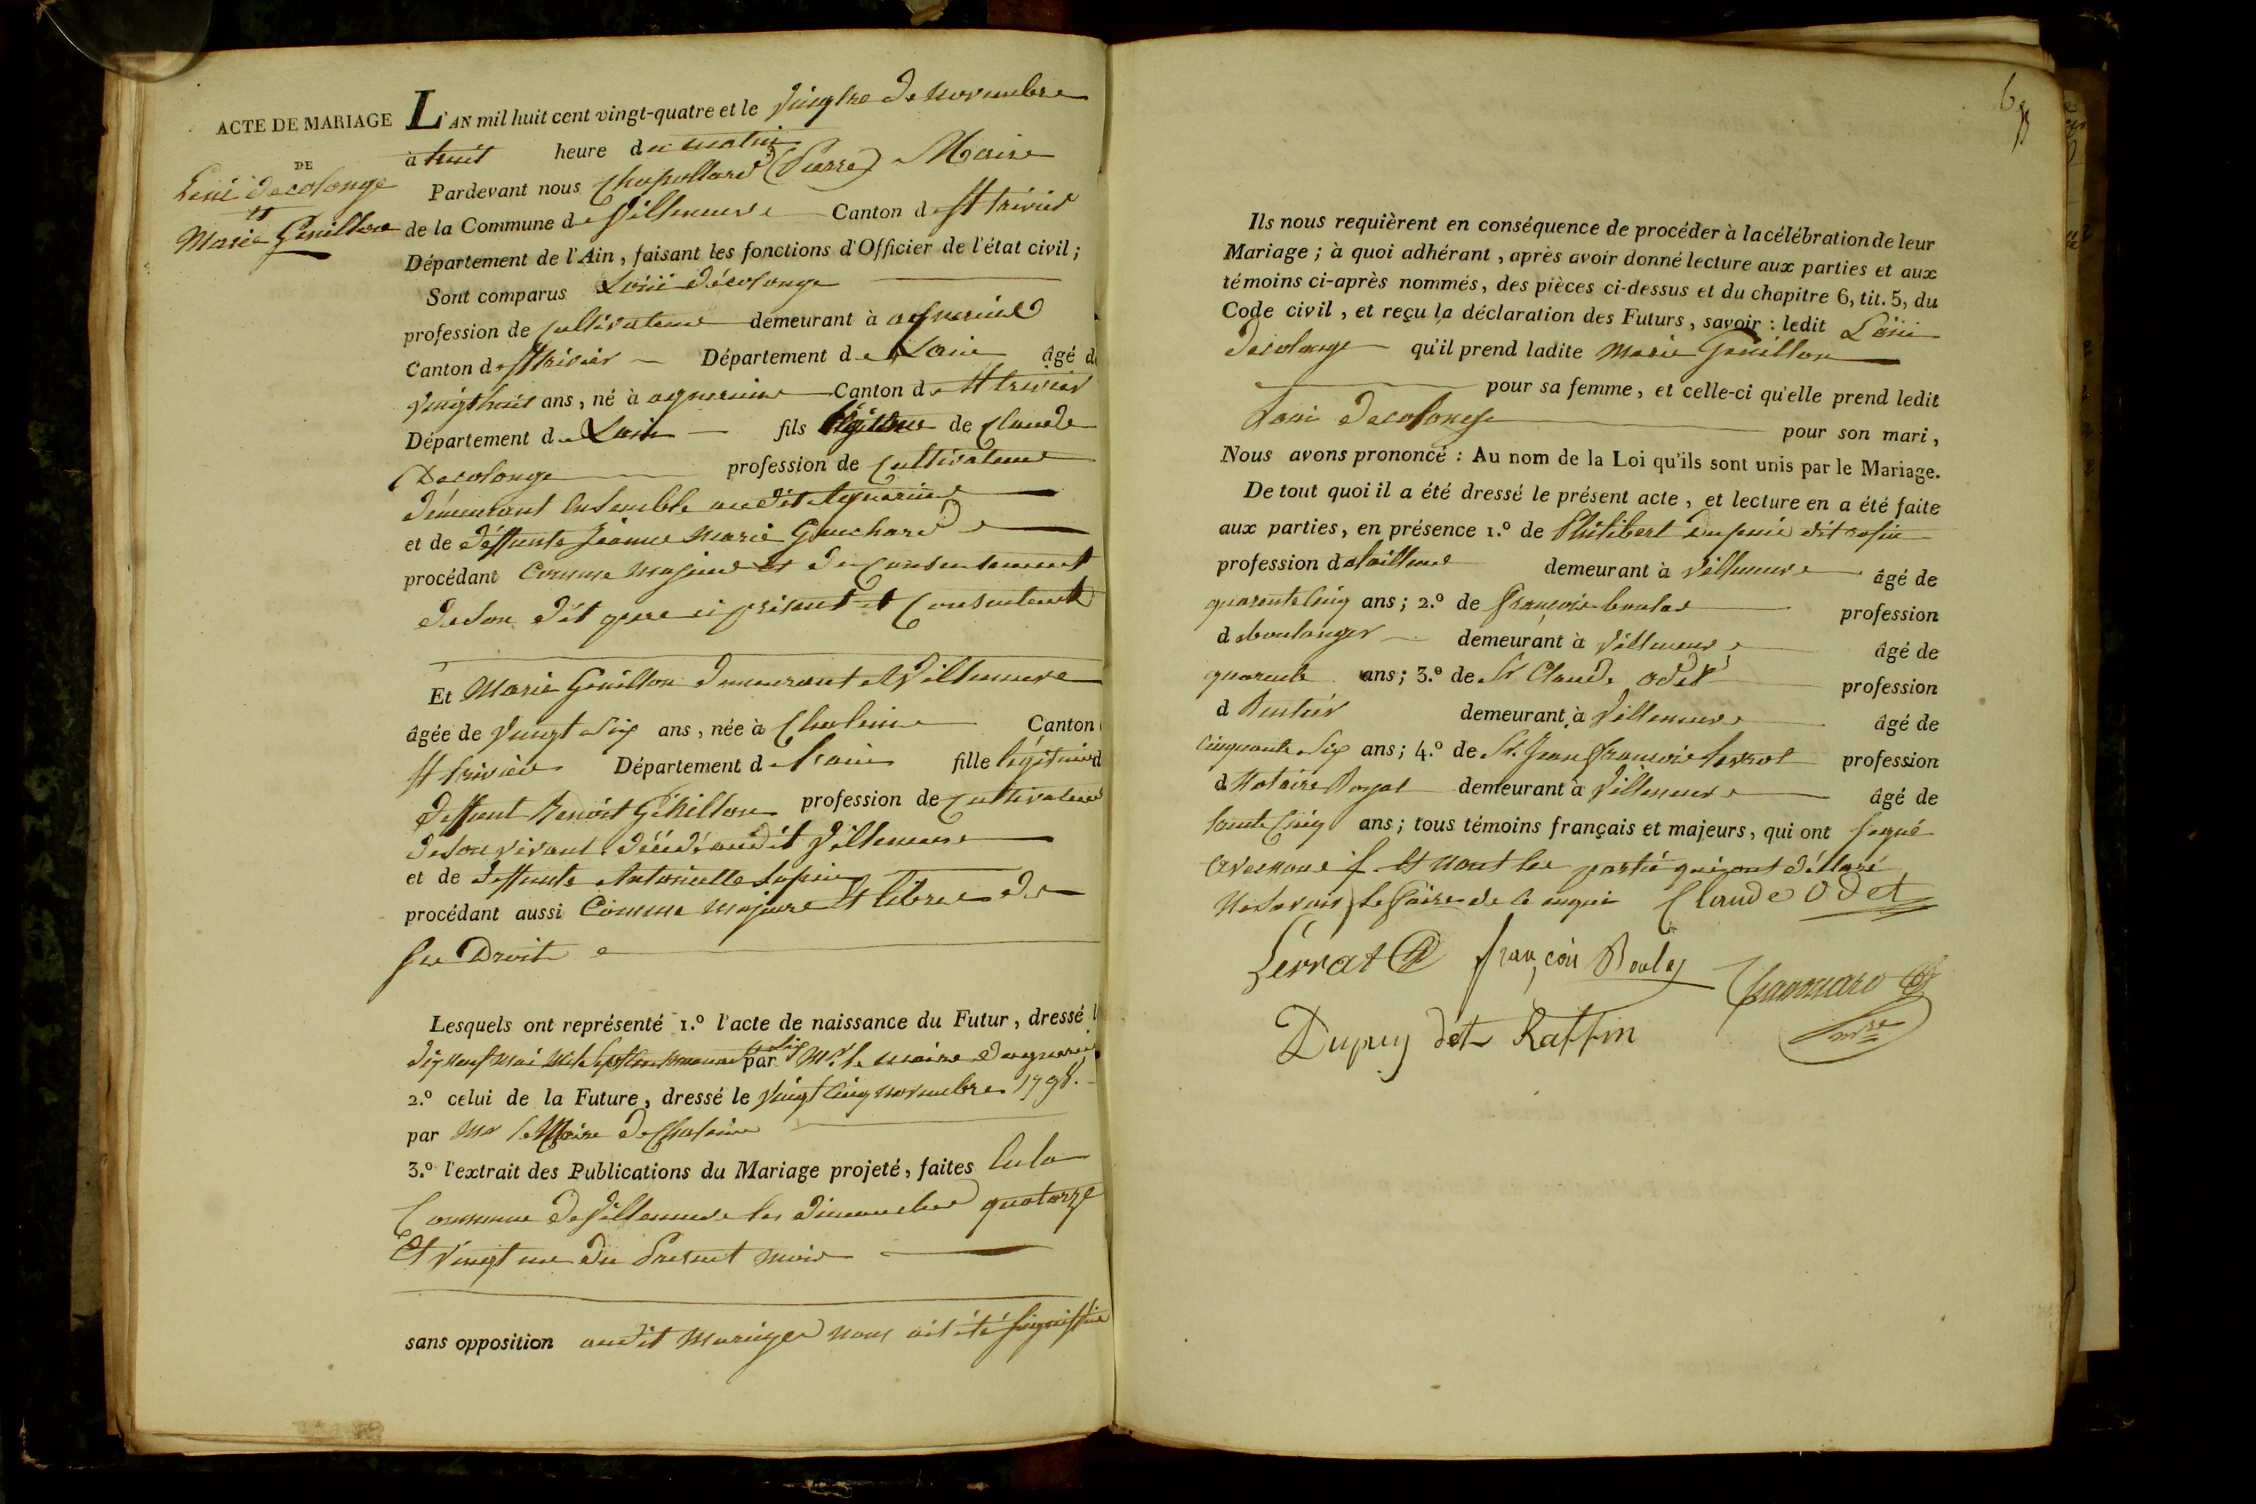 6
ACTE DE MARIAGE
DE
Loui Decolonge
et
Marie Genillon
L'AN mil huit cent vingt-quatre et le Vingt de novembre
à huit heure du matin
Pardevant nous (Pierre) Maire
de la Commune de Villeneuve Canton de St trivier
Département de l'Ain, faisant les fonctions d'Officier de l'état civil;
Sont comparus Loüi décolonge
profession de Cultivateur demeurant à
Canton de St trivier Département de Lain âgé de
Vingthuit ans, né à Canton de St trivier
Département de Lain fils légitime de Claude
Decolonge profession de Cultivateur
démeurant Ensemble audit
et de déffunte Jeanne Marie Guichard
procédant Comme Majeur et du Consentement
de son dit pere ci présent et Consentent
Et Marie Genillon demeurant à Villeneuve
âgée de Vingt Six ans, née à Chaleine Canton
St trivier Département de Lain fille légitime d
deffunt Benoit Génillon profession de Cultivateur
de son vivant décédé audit Villeneuve
et de deffunte Antoinette
procédant aussi Comme majeure et libre de
Ses Droit
Lesquels ont représenté 1.º l'acte de naissance du Futur, dressé l
dix neuf mai mil Sept Cent par Mr. le maire
2.º celui de la Future, dressé le Vingt Cinq novembre 1798.
par Mr le Maire de Chaleine
3.º l'extrait des Publications du Mariage projeté, faites En la
Commune de Villeneuve les dimanches quatorze
Et Vingt un du Present mois
sans opposition audit Mariage nous ait été Signiffié
Ils nous requièrent en conséquence de procéder à la célébration de leur
Mariage; à quoi adhérant, après avoir donné lecture aux parties et aux
témoins ci-après nommés, des pièces ci-dessus et du chapitre 6, tit. 5, du
Code civil, et reçu la déclaration des Futurs, savoir: ledit Loüi
Decolonge qu'il prend ladite Marie Genillon
pour sa femme, et celle-ci qu'elle prend ledit
Loui Decolonge pour son mari,
Nous avons prononcé: Au nom de la Loi qu'ils sont unis par le Mariage.
De tout quoi il a été dressé le présent acte, et lecture en a été faite
aux parties, en présence 1.º de Philibert dit
profession de tailleur demeurant à Villeneuve âgé de
quarente Cinq ans; 2.º de françois boulas profession
de boulanger demeurant à Villeneuve âgé de
quarente ans; 3.º de Sr Claude odet profession
d Rentier demeurant à Villeneuve âgé de
Cinquante Six ans; 4.º de Sr. Jean françois profession
d Notaire Royal demeurant à Villeneuve âgé de
ans; tous témoins français et majeurs, qui ont Signé
avec nous Et non les partie qui ont déclaré
Ne Savoir le faire de ce enquis Claude Odet
françois Boulas
Dupuy dit Raffin